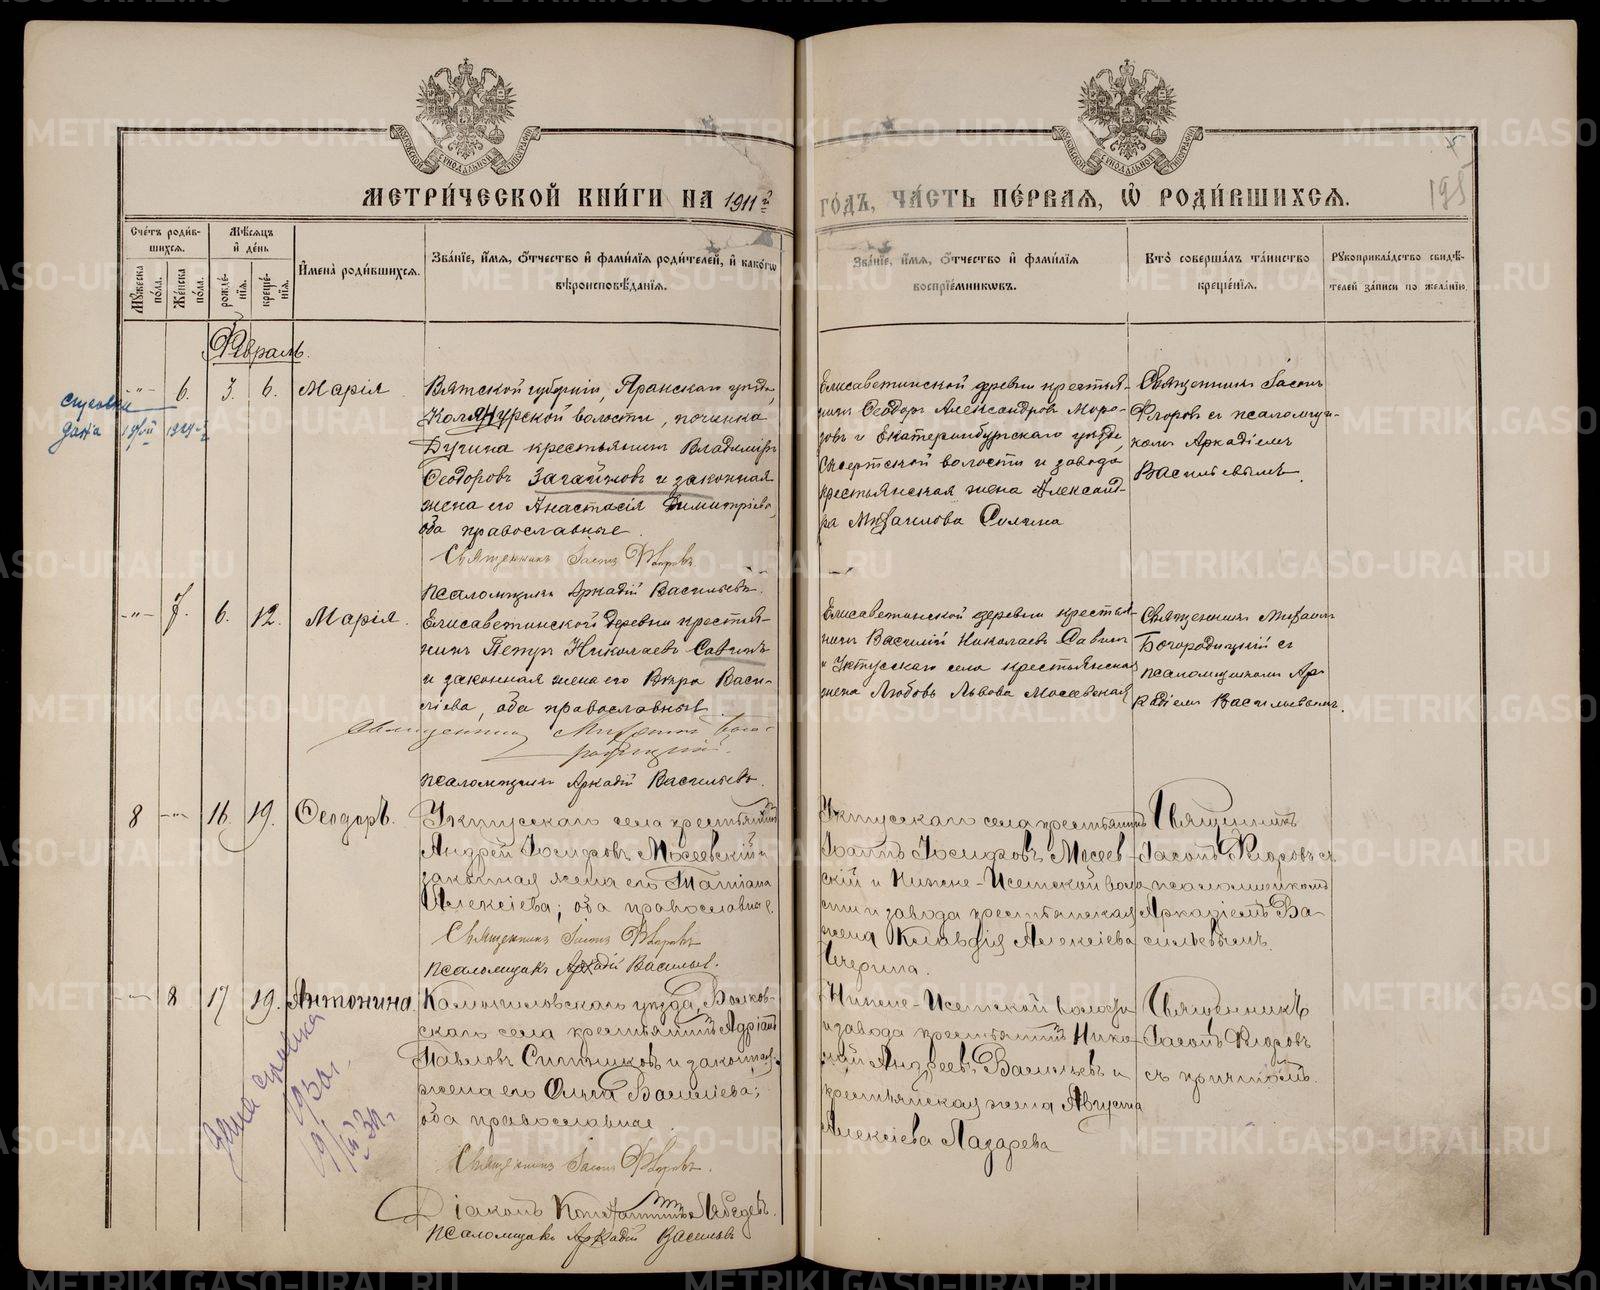 МЕТРИ́ЧЕСКОЙ КНИ́ГИ НА 1911й
ГО́ДЪ, ЧА́СТЬ ПЕ́РВАЯ, Ѡ҆ РОДИ́ВШИХСЯ.
195
Сче́тъ роди́в-
шихся.
Мѣ́сяцъ
и҆ де́нь
Му́жеска
по́ла.
Же́нска
по́ла.
рожде́-
нїя.
креще́-
нїя.
И҆мена̀ роди́вшихся.
Зва́нїе, и҆́мя, о҆́тчество и҆ фами́лїя роди́телей, и҆ како́гѡ
вѣроисповѣ́данїя.
Зва́нїе, и҆́мя, о҆́тчество и҆ фами́лїя
воспрїе́мникѡвъ.
Кто̀ соверша́лъ та́инство
креще́нїя.
Рꙋкоприкла́дство свидѣ́-
телей за́писи по жела́нїю.
Февраль.
-"- 6. 3. 6. Марія
Вятской губерніи, Яранскаго уѣзда,
волости, починка
крестьянинъ Владиміръ
Ѳеодоровъ Загайновъ и законная
жена его Анастасія Димитріева,
оба православные.
Священникъ Іасонъ Флоровъ.
Псаломщикъ Аркадій Васильевъ.
Елисаветинской деревни крестья-
нинъ Ѳеодоръ Александровъ Моро-
зовъ и Екатеринбургскаго уѣзда,
Сысертской волости и завода
крестьянская жена Александ-
ра Михаилова
Священникъ Іасонъ
Флоровъ съ псаломщи-
комъ Аркадіемъ
Васильевымъ.
дана 1924
-"- 7. 6. 12. Марія.
Елисаветинской деревни крестья-
нинъ Петръ Николаевъ Савинъ
и законная жена его Вѣра Васи-
ліева, оба православные.
Священникъ Михаилъ Бого-
родицкій.
Псаломщикъ Аркадій Васильевъ.
Елисаветинской деревни крестья-
нинъ Василій Николаевъ Савинъ
и Уктусскаго села крестьянская
жена Любовь Львова Мосеевская
Священникъ Михаилъ
Богородицкій съ
псаломщикомъ Ар-
кадіемъ Васильевымъ.
8 -"- 16. 19. Ѳеодоръ.
Уктусскаго села крестьянинъ
Андрей Іосифовъ Мосеевскій и
законная жена его Татіана
Алексіева; оба православные.
Священникъ Іасонъ Флоровъ
Псаломщикъ Аркадій Васильев.
Уктусскаго села крестьянинъ
Іоаннъ Іосифовъ Мосеев-
скій и Нижне-Исетской воло-
сти и завода крестьянская
жена Клавдія Алексіева
Священникъ
Іасонъ Флоровъ съ
псаломщикомъ
Аркадіемъ Ва-
сильевымъ.
-"- 8 17 19. Антонина.
Камышловскаго уѣзда, Волков-
скаго села крестьянинъ Адріанъ
Павловъ Ситниковъ и законная
жена его Ольга Василіева;
оба православные.
Священникъ Іасонъ Флоровъ.
Діаконъ Константинъ Лебедевъ.
Псаломщикъ Аркадій Васильевъ
Нижне-Исетской волости
и завода крестьянинъ Нико-
лай Андреевъ Васильевъ и
крестьянская жена Августа
Алексіева Лазарева
Священникъ
Іасонъ Флоровъ
съ причтомъ.
Дана справка
1930г.